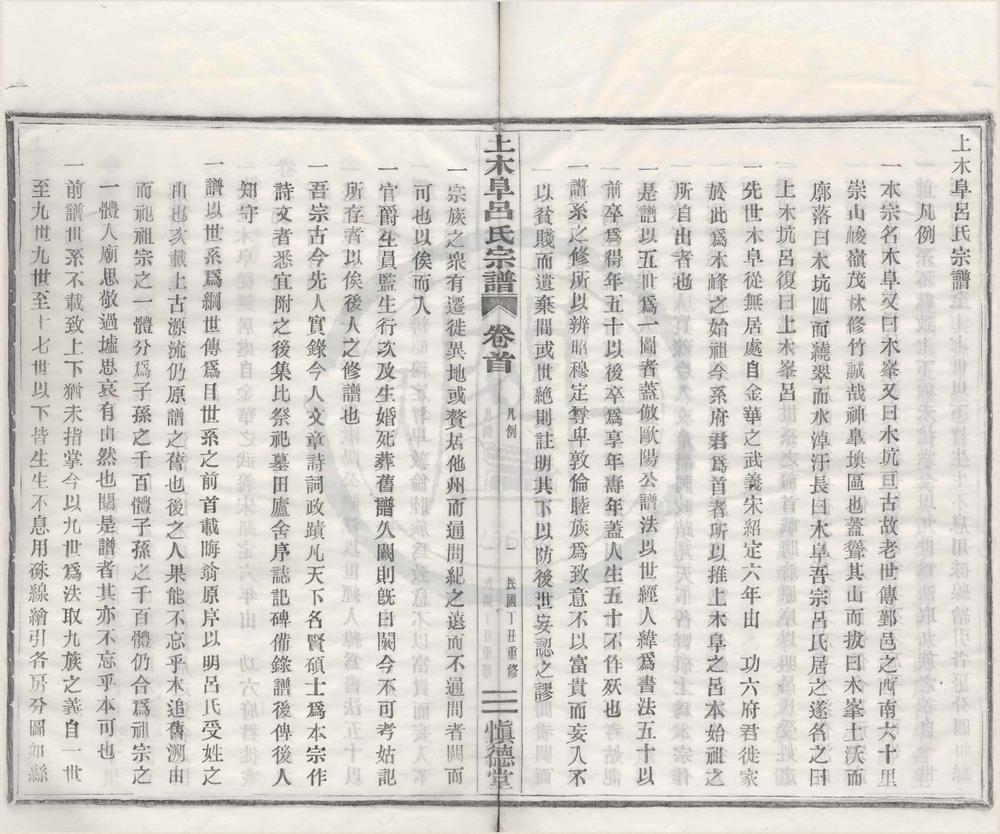 上木阜呂氏宗譜
凡例
一本宗名木阜又曰木峯又曰木坑亘古故老世傳鄞邑之西南六十里
崇山峻嶺茂林修竹誠哉神臯墺區也蓋聳其山而拔曰木峯土沃而
廓落曰木坑四面繞翠而水淖汙長曰木阜吾宗呂氏居之遂名之曰
上木坑呂復曰上木峯呂
先世木阜從無居處自金華之武義宋紹定六年由 功六府君徙家
於此爲木峰之始祖今系府君爲首者所以推上木阜之呂本始祖之
所自出者也
一是譜以五世爲一圖者蓋倣歐陽公譜法以世經人緯爲書法五十以
前卒爲得年五十以後卒爲享年壽年蓋人生五十不作殀也
一譜系之修所以辨昭穆定尊卑敦倫睦族爲致意不以富貴而妄入不
以貧賤而遺棄間或世絶則註明其下以防後世妄認之謬
上木阜呂氏宗譜 卷首 凡例 一 民國丁丑重修 愼德堂
一宗族之衆有遷徙異地或贅居他州而通問紀之遠而不通問者闕而
可也以俟而入
一官爵生員監生行次及生婚死葬舊譜久闕則旣曰闕今不可考姑記
所存者以俟後人之修譜也
一吾宗古今先人實錄今人文章詩詞政蹟凡天下名賢碩士爲本宗作
詩文者悉宜附之後集比祭祀墓田廬舍序誌記碑備錄譜後俾後人
知守
一譜以世系爲綱世傳爲目世系之前首載晦翁原序以明呂氏受姓之
由也次載上古源流仍原譜之舊也後之人果能不忘乎木追舊溯由
而祀祖宗之一體分爲子孫之千百體子孫之千百體仍合爲祖宗之
一體入廟思敬過墟思哀有由然也閱是譜者其亦不忘乎本可也
一前譜世系不載致上下猶未指掌今以九世爲法取九族之義自一世
至九世九世至十七世以下皆生生不息用硃線繪引各房分圖如緜